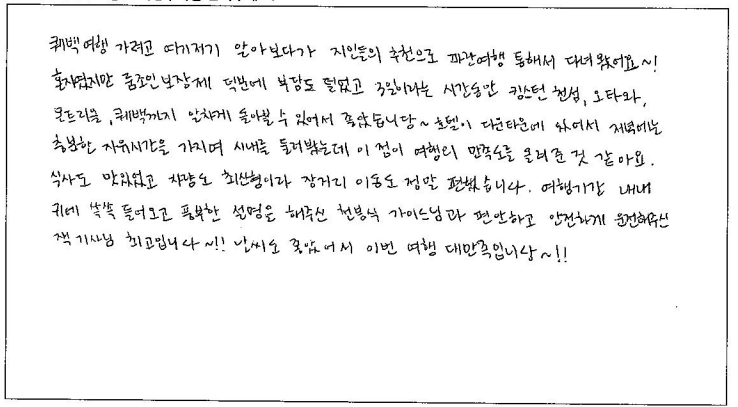 퀘백여행 가려고 여기저기 알아보다가 지인들의 추천으로 파란여행 통해서 다녀왔어요~!
혼자였지만 룸조인보장제 덕분에 부담도 덜었고 3일이라는 시간동안 킹스턴 천섬, 오타와,
몬트리올, 퀘백까지 알차게 돌아볼 수 있어서 좋았습니당~ 호텔이 다운타운에 있어서 저녁에는
충분한 자유시간을 가지며 시내를 둘러봤는데 이 점이 여행의 만족도를 올려준 것 같아요.
식사도 맛있었고 차량도 최신형이라 장거리 이동도 정말 편했습니다. 여행기간 내내
귀에 쏙쏙 들어오고 풍부한 설명을 해주신 천봉식 가이드님과 편안하고 안전하게 운전해주신
잭 기사님 최고입니다~!! 날씨도 좋았어서 이번 여행 대만족입니당~!!